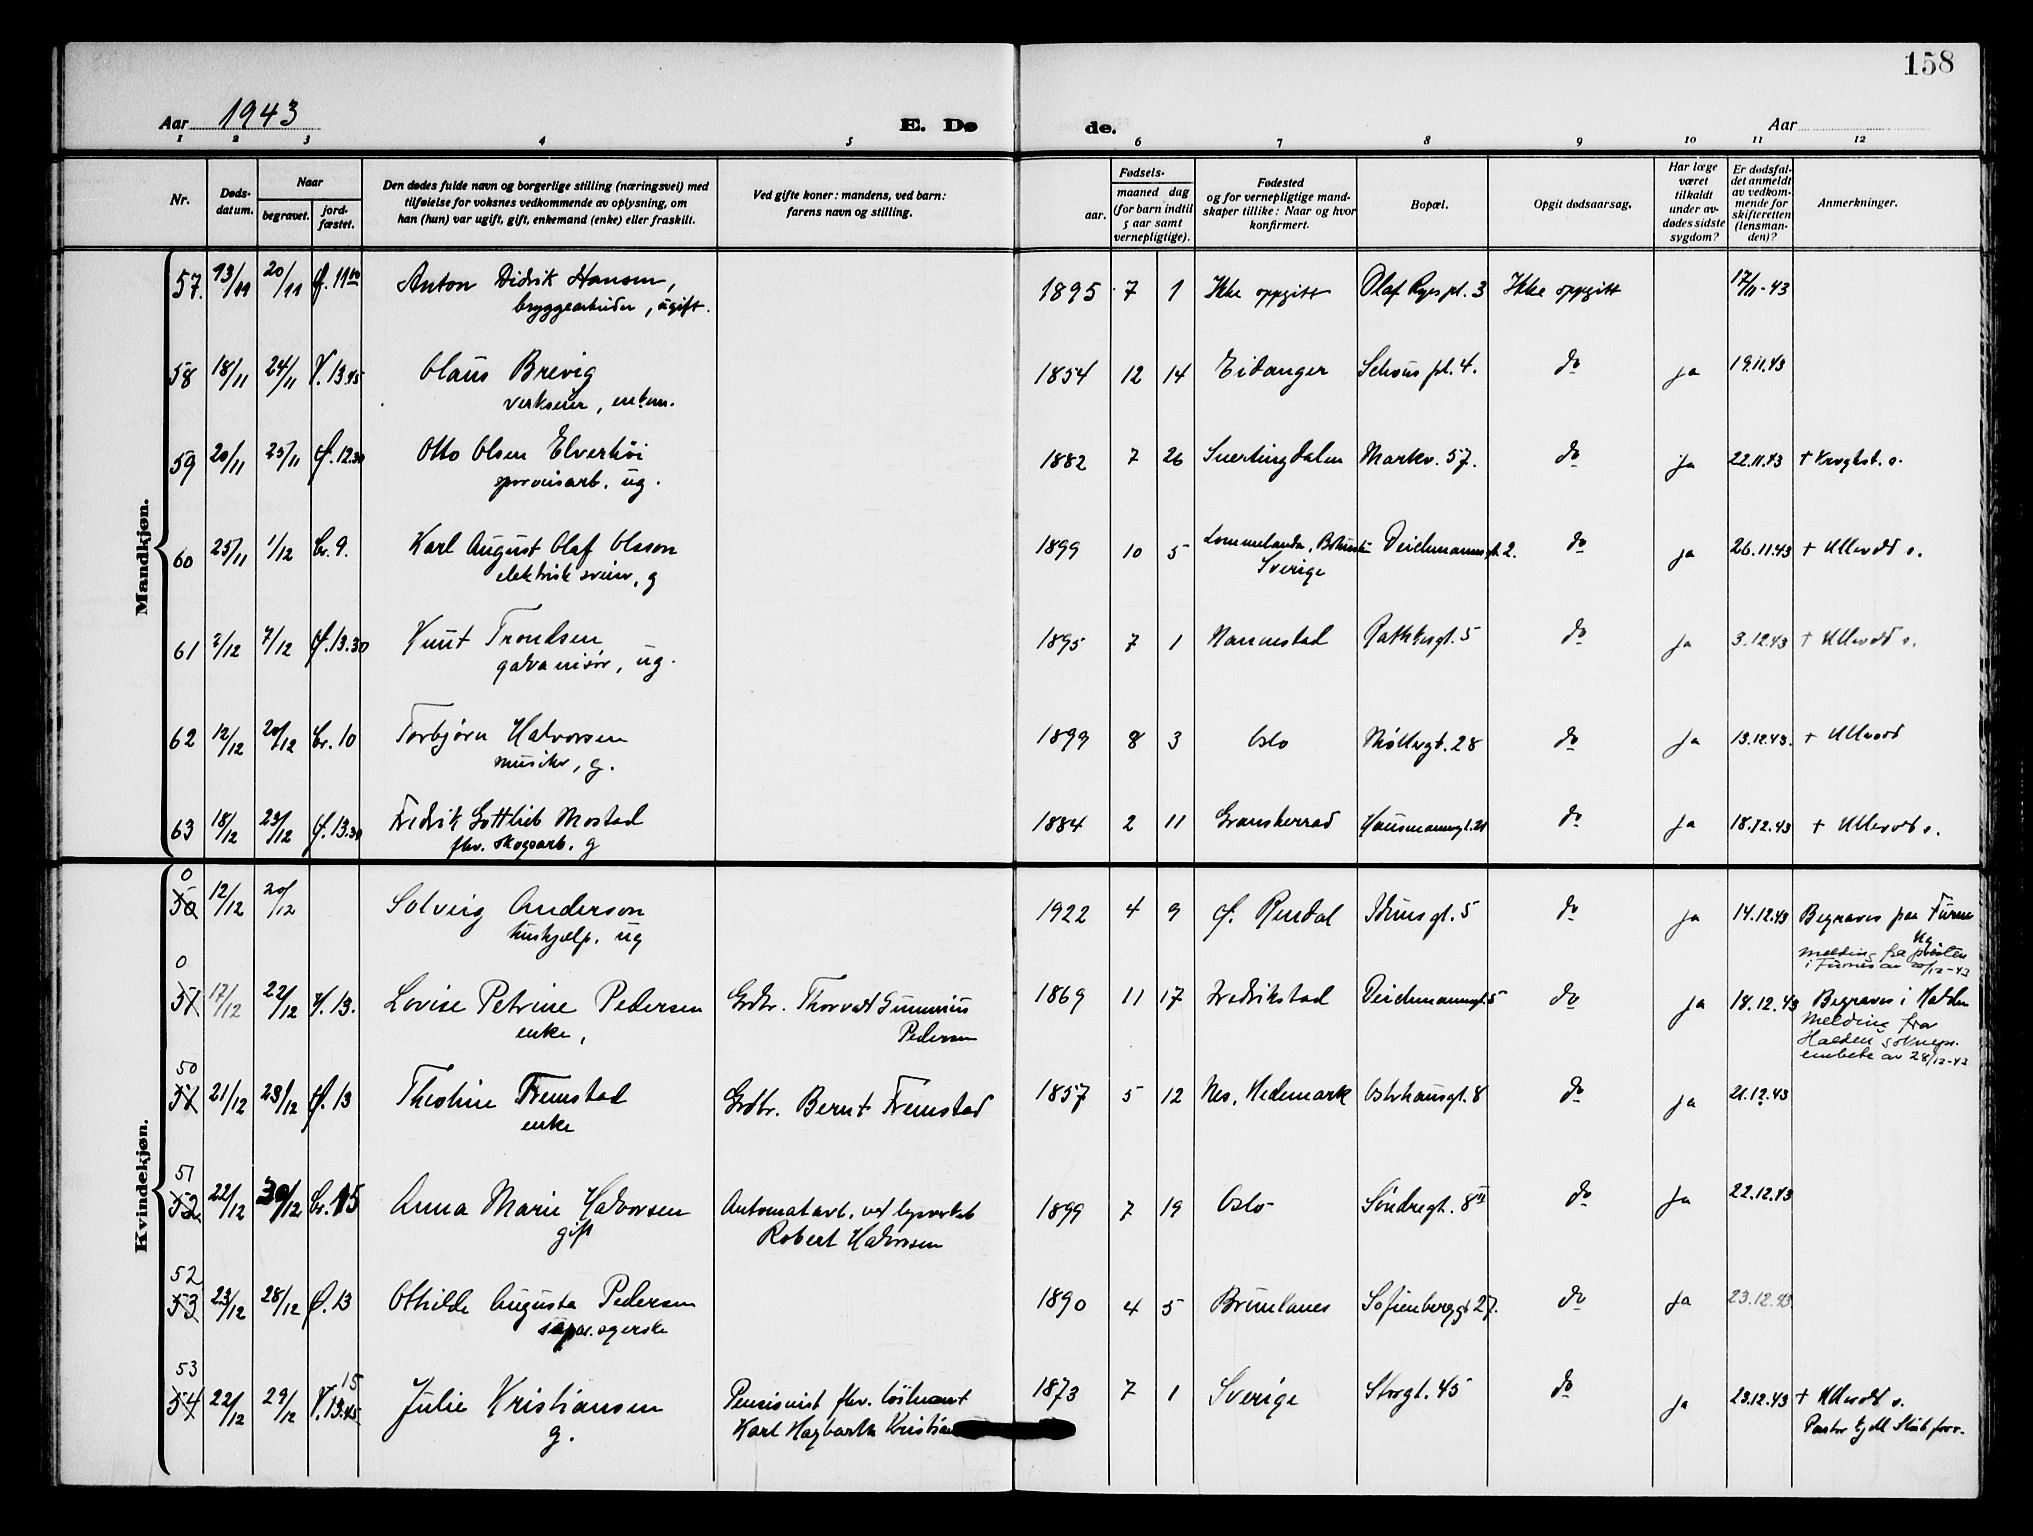 158
Aar 1943
E. Dø de.
Aar
1 2 3 4 5 6 7 8 9 10 11 12
Nr.
Døds-
datum.
Naar
begravet.
jord-
fæstet.
Den dødes fulde navn og borgerlige stilling (næringsvei) med
tilføielse for voksnes vedkommende av oplysning, om
han (hun) var ugift, gift, enkemand (enke) eller fraskilt.
Ved gifte koner: mandens, ved barn:
farens navn og stilling.
Fødsels-
aar.
maaned dag
(for barn indtil
5 aar samt
vernepligtige).
Fødested
og for vernepligtige mand-
skaper tillike: Naar og hvor
konfirmert.
Bopæl.
Opgit dødsaarsag.
Har læge
været
tilkaldt
under av-
dødes sidste
sygdom?
Er dødsfal-
det anmeldt
av vedkom-
mende for
skifteretten
(lensman-
den)?
Anmerkninger.
Mandkjøn.
57. 13/11 20/11 Ø. 11 00 Anton Didrik Hansen, 1895 7 1 Ikke oppgitt Olaf Ryes pl. 3 Ikke oppgitt 17/11-43
bryggearbeider, ugift.
58 18/11 24/11 V. 13.45 Olaus Brevig 1854 12 14 Eidanger Schous pl. 4. do ja 19.11.43
verkseier, enkem.
59 20/11 25/11 Ø. 12.30 Otto Olsen Elverhöi 1882 7 26 Snertingdalen Markv. 57. do ja 22.11.43 + Kroghst. s.
sporveisarb. ug.
60 25/11 1/12 Cr. 9. Karl August Olaf Olsson 1899 10 5 Lommelanda, Deichmannsgt. 2. do ja 26.11.43 + Ullevål s.
elektrik sveiser, g Sverige
61 2/12 7/12 Ø. 13.30 Knut Trondsen 1895 7 1 Nannestad Rathkesgt. 5 do ja 3.12.43 + Ullevål s.
galvanisør, ug.
62 12/12 20/12 Cr. 10 Torbjørn Halvorsen 1899 8 3 Oslo Møllergt. 28 do ja 13.12.43. + Ullevål
musiker, g.
63 18/12 23/12 Ø. 13.30 Fredrik Gottlieb Mostad 1884 2 11 Gransherrad Hausmannsgt. 21 do ja 18.12.43 + Ullevål s.
fhv. skogsarb. g
Kvindekjøn.
0
50 12/12 20/12 Solveig Anderson 1922 4 9 Ø. Rendal Idunsgt. 5 do ja 14.12.43 Begraves paa Furnes
hushjelp. ug
melding fra presten
i Furnes av 20/12-43
0
51 17/12 22/12 V. 13. Lovise Petrine Pedersen Grdbr. Thorvald Gunerius 1869 11 17 Fredrikstad Deichmannsgt. 5 do ja 18.12.43 Begraves i Halden
enke, Pedersen
Melding fra
Halden soknepr.
embete av 28/12-43
50
51 21/12 28/12 Ø. 13 Theoline Fremstad Grdbr. Bernt Fremstad 1857 5 12 Nes, Hedemark Osterhausgt. 8 do ja 21.12.43
enke
51
52 22/12 30/12 Cr. 15 Anna Marie Halvorsen Automatarb. ved lysverket 1899 7 19 Oslo Søndregt. 8 III do ja 22.12.43
gift Robert Halvorsen
52
53 23/12 28/12 Ø. 13 Othilde Augusta Pedersen 1890 4 5 Brunlanes Sofienberggt 27. do ja 23.12.43
separ. syerske
53
54 22/12 29/12 V. 13.45 15 Julie Kristiansen Pensionist fhv. løitnant 1873 7 1 Sverige Storgt. 45 do ja 23.12.43 + Ullevål s.
g. Karl Hagbarth Pastor Kjell forr.